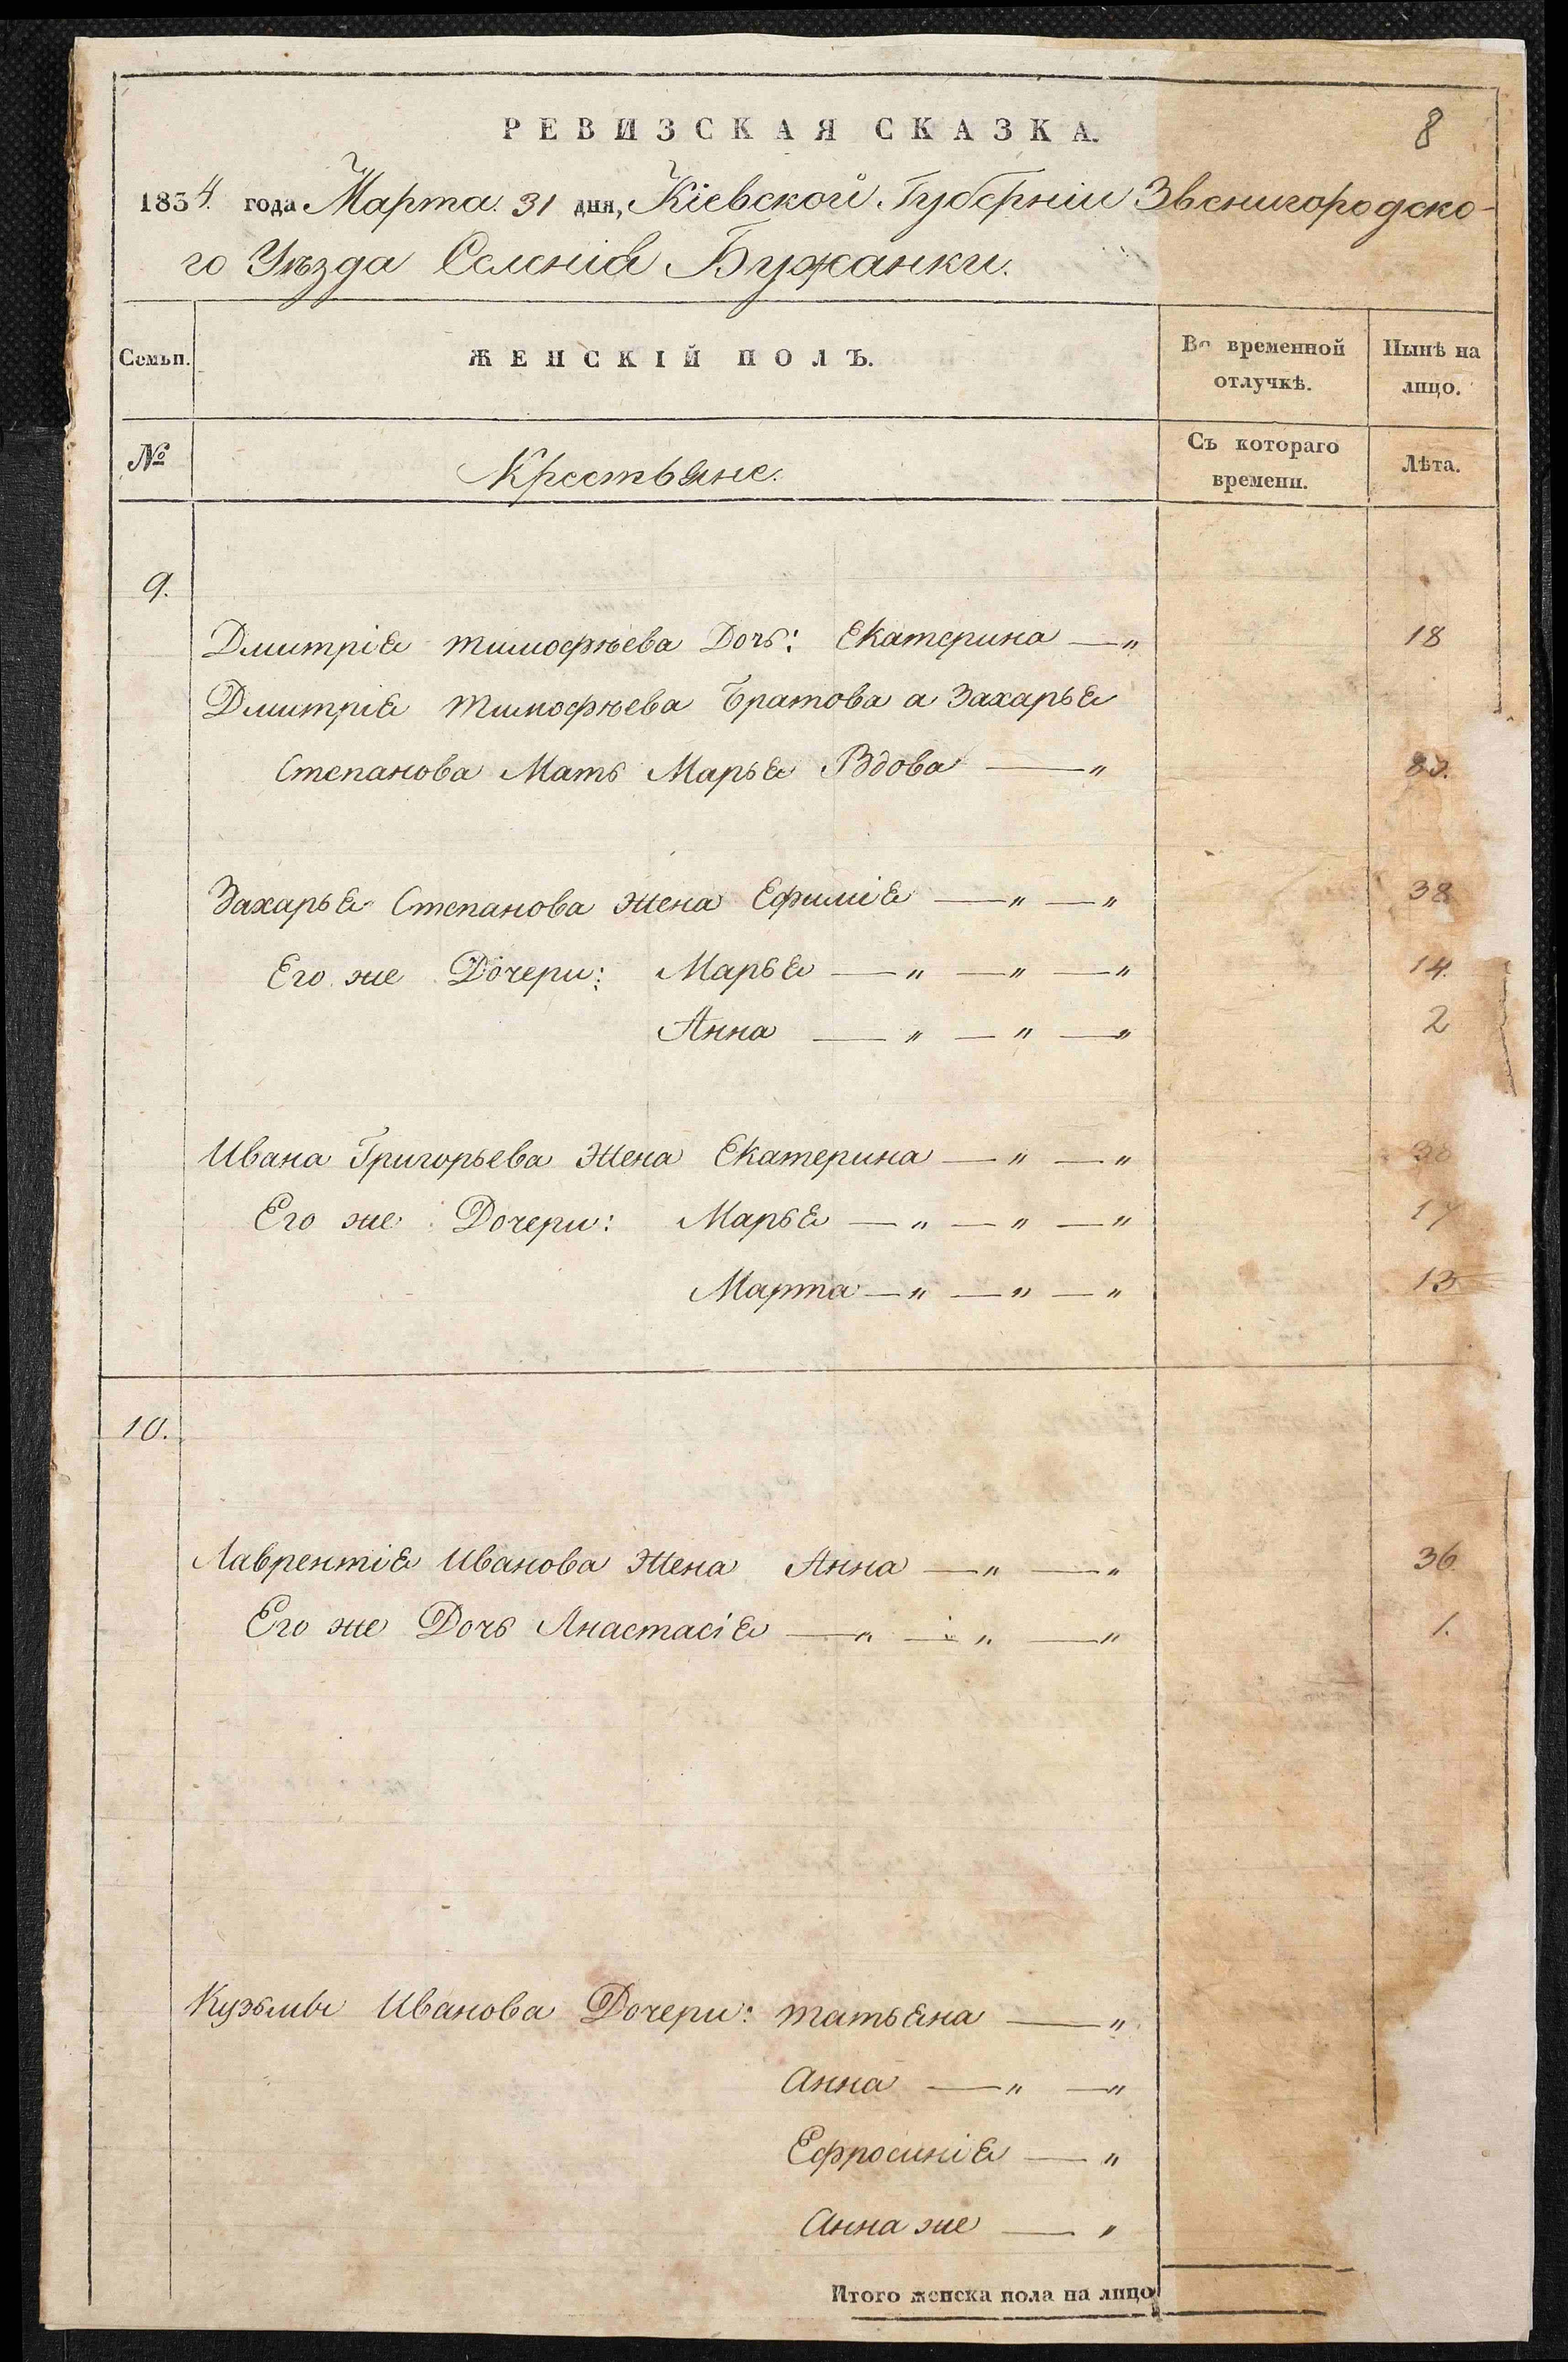 РЕВИЗСКАЯ СКАЗКА.
8
1834. года Марта. 31 дня, Кіевской Губерніи Звенигородско-
го Уѣзда Селенія Бужанки.
Семьи. ЖЕНСКІЙ ПОЛЪ. Во временной отлучкѣ. Нынѣ на лицо.
№ Крестьяне. Съ котораго времени. Лѣта.
9.
Дмитрія Тимофѣева Дочь: Екатерина —„ 18
Дмитрія Тимофѣева Братова а Захарья
Степанова Мать Марья Вдова —„
Захарья Степанова Жена Ефимія —„ —„ 38
Его же Дочери: Марья —„ —„ —„ 14.
Анна —„ —„ —„ 2
Ивана Григорьева Жена Екатерина —„ —„
Его же Дочери: Марья —„ —„ —„ 17
Марта —„ —„ —„
10.
Лаврентія Иванова Жена Анна —„ —„ 36.
Его же Дочь Анастасія —„ —„ —„ 1.
Кузьмы Иванова Дочери: Татьяна —„
Анна —„ —„
Ефросинія —„
Анна же —„
Итого женска пола на лицо